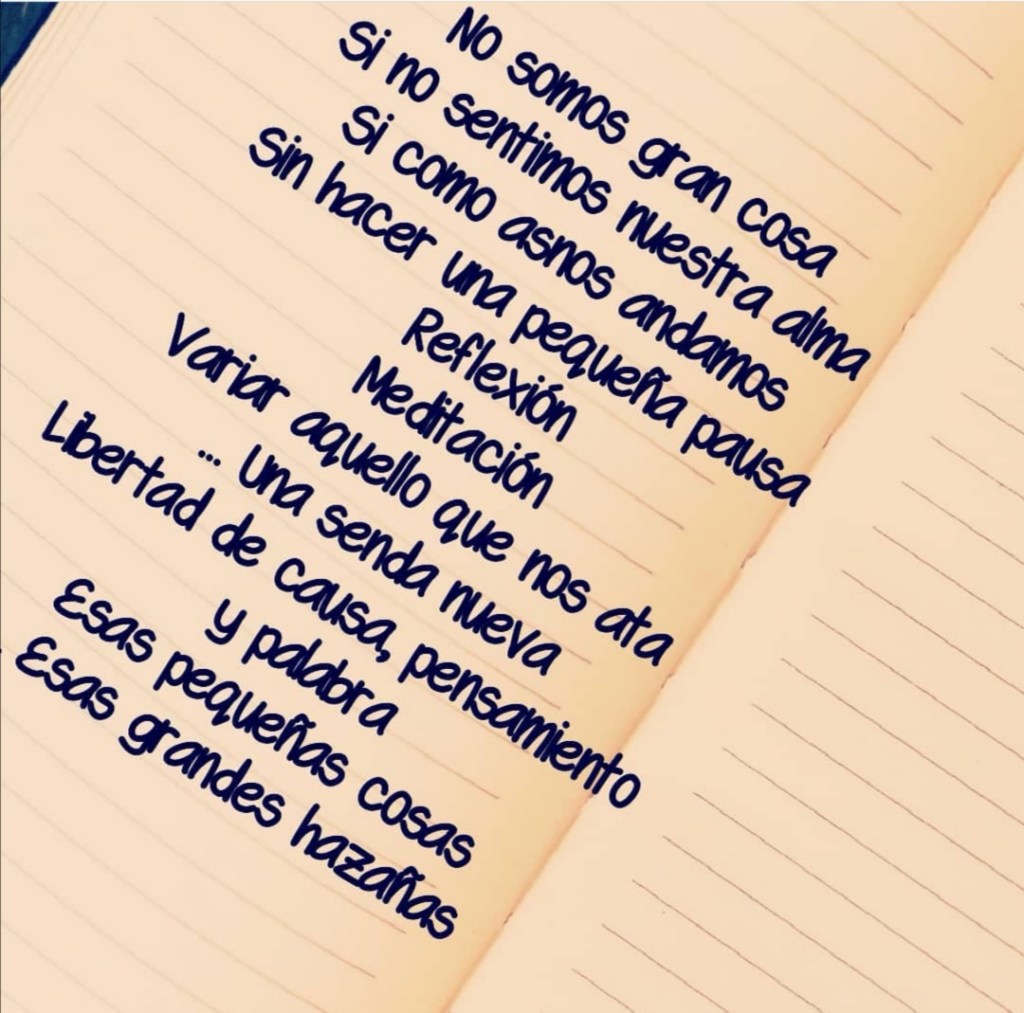 No somos gran cosa
Si no sentimos nuestra alma
Si como asnos andamos
Sin hacer una pequeña pausa
Reflexión
Meditación
Variar aquello que nos ata
... una senda nueva
Libertad de causa, pensamiento
y palabra
Esas pequeñas cosas
Esas grandes hazañas